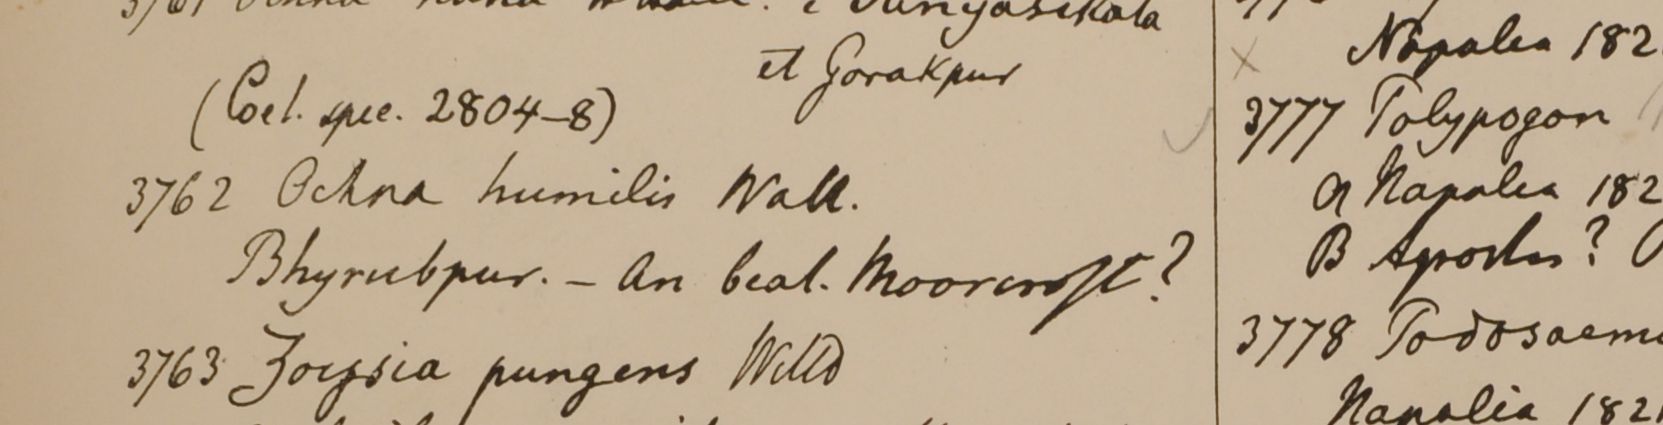 3761 Ochna nana
et Gorakpur
(Coel. spec. 2804-8)
3762 Ochna humilis Wall.
Bhyrubpur. - An beat. Moorcroft?
3763 Zoysia pungens Willd
Napalia 182
X
3777 Polypogon
α Napalia 182
β
3778
Napalia 1821